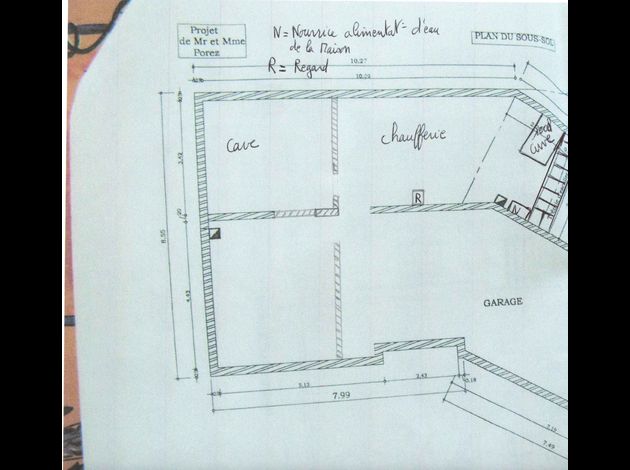 Projet
de Mr et Mme
Porez
N = Nourrice alimentat° d'eau
de la Maison
R = Regard
PLAN DU SOUS-SOL
10.27
10.02
cave
chaufferie
3.42
R
N
cuve
8.55
20
4.43
GARAGE
5.13
2.43
0.18
7.99
7.15
7.49